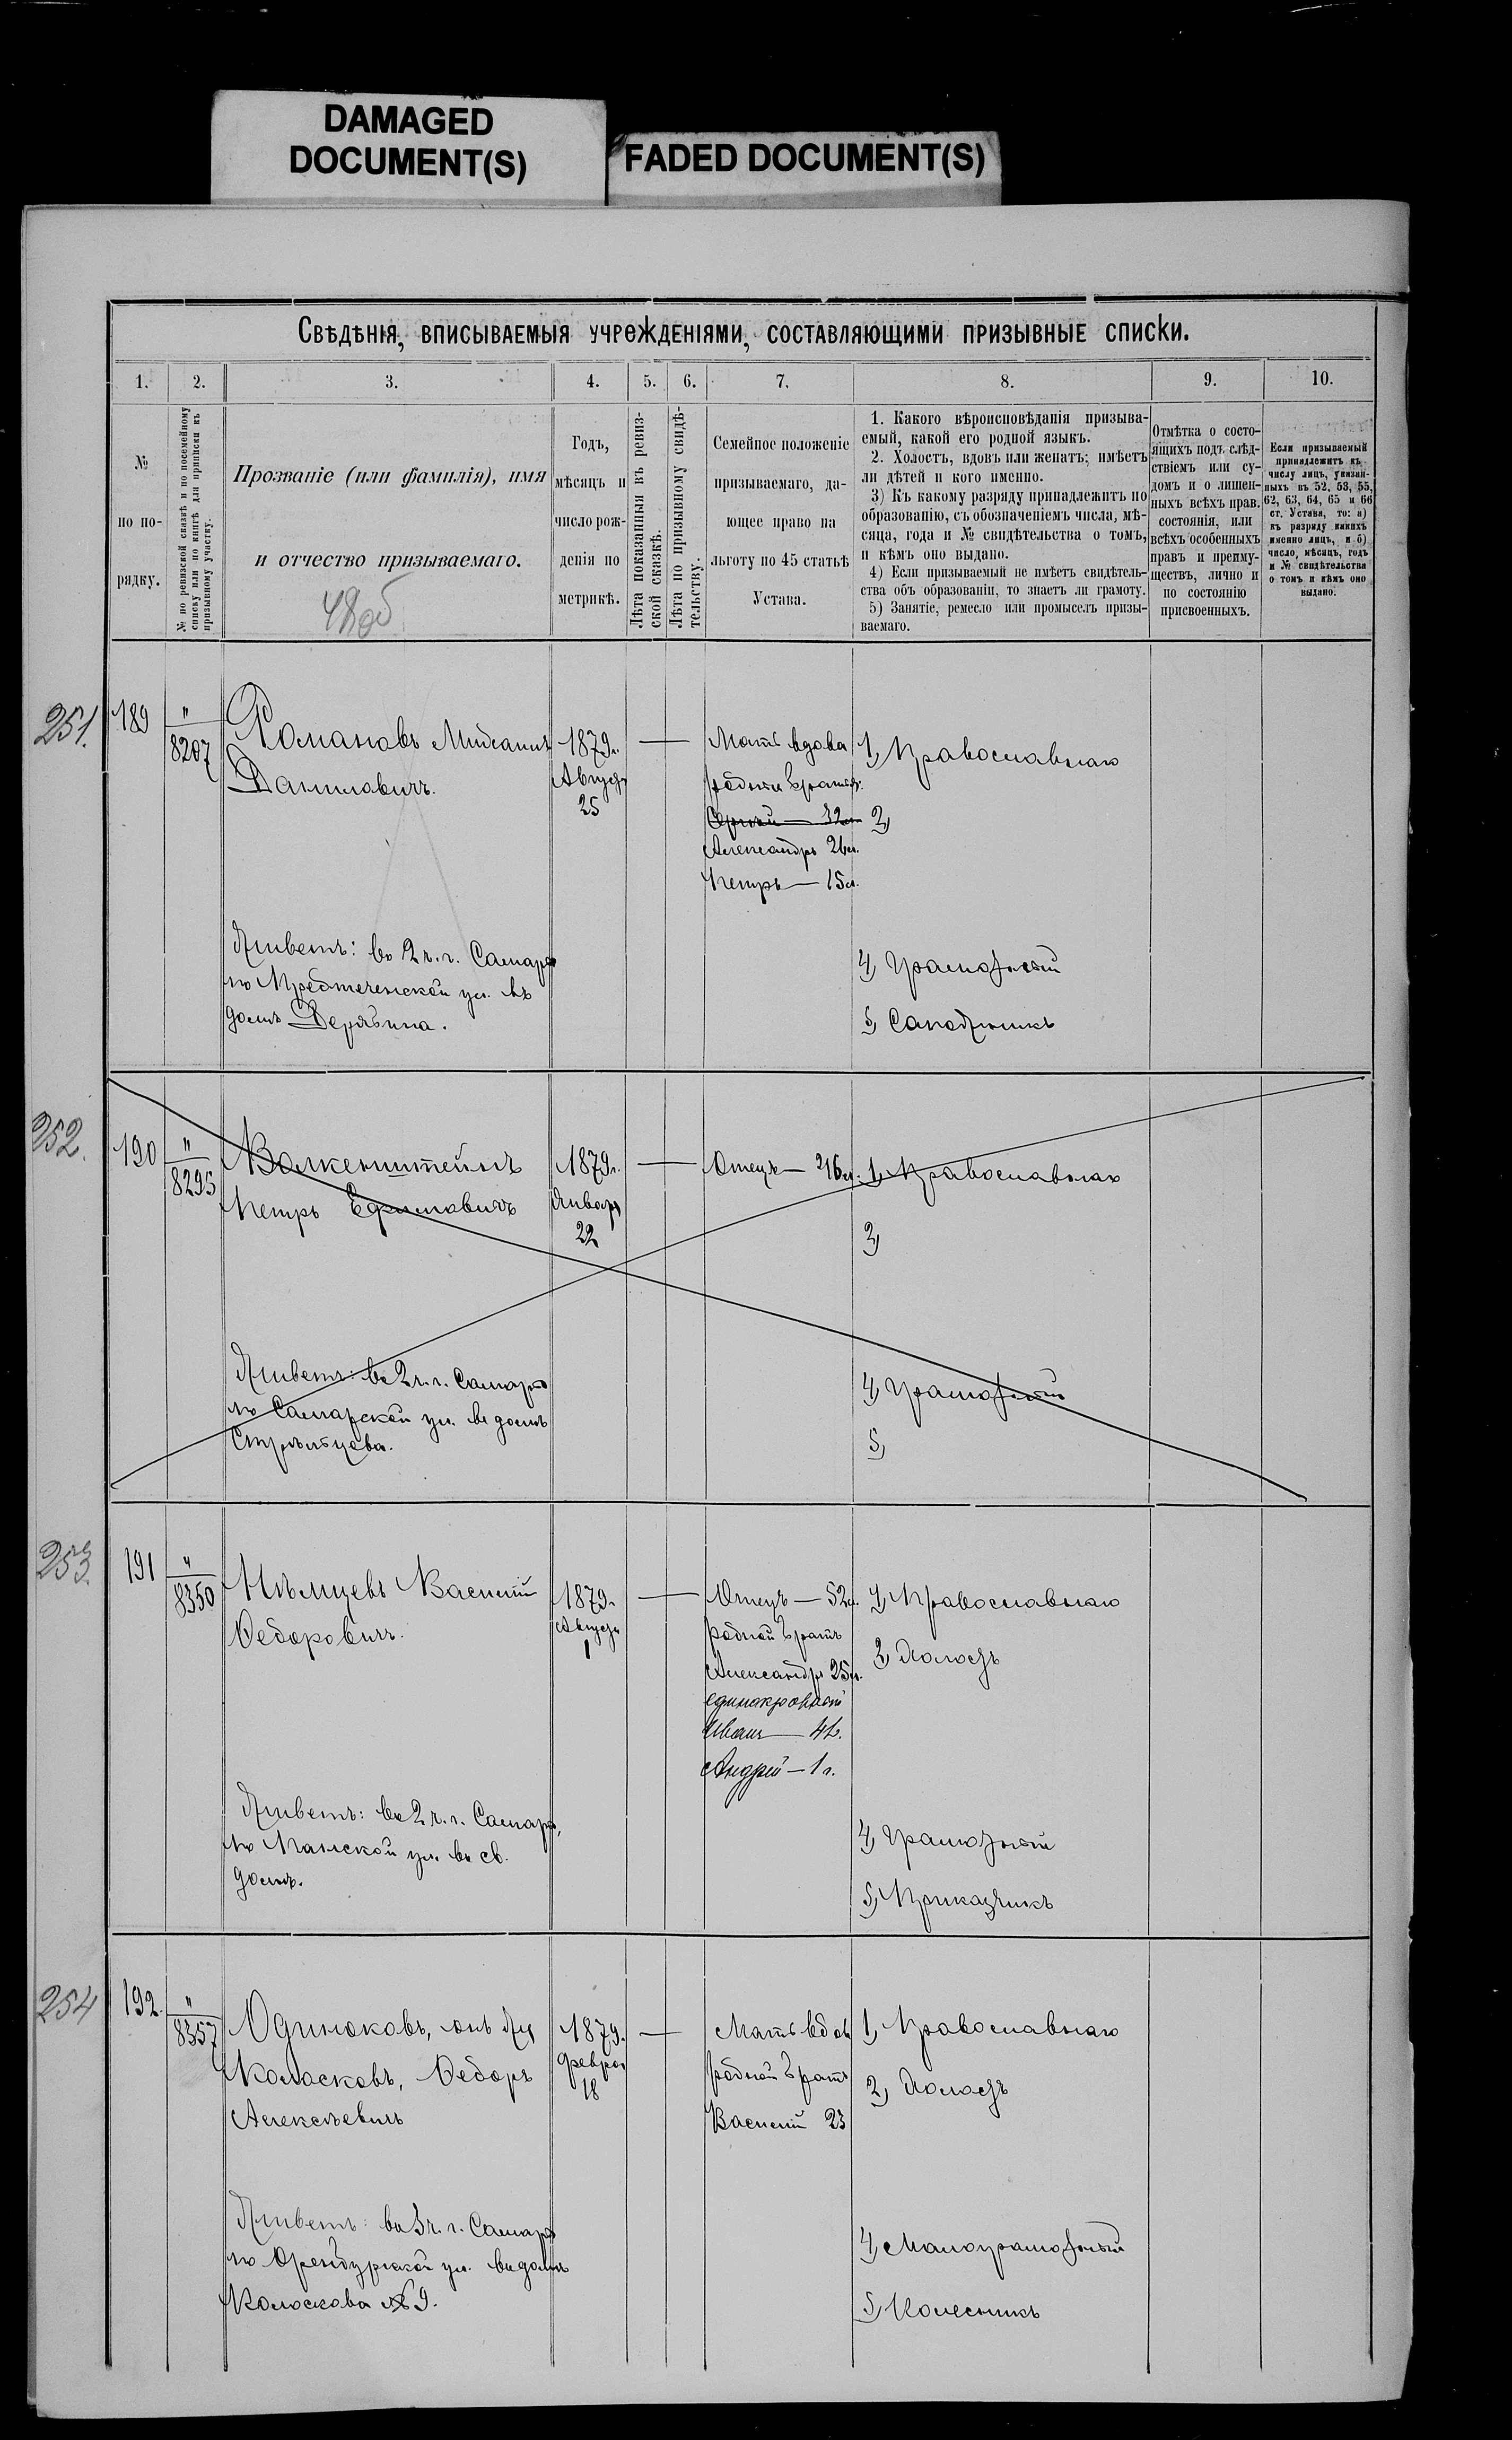 DAMAGED
DOCUMENT(S)
FADED DOCUMENT(S)
Свѣдѣнія, вписываемыя учрежденіями, составляющими призывные списки.
1.
2.
3.
4.
5.
6.
7.
8.
9.
10.
№
по по-
рядку.
№ по ревизской сказкѣ и по посемейному
списку или по книгѣ для приписки къ
призывному участку.
Прозваніе (или фамилія), имя
и отчество призываемаго.
Годъ,
мѣсяцъ и
число рож-
денія по
метрикѣ.
Лѣта показанныя въ ревиз-
ской сказкѣ.
Лѣта по призывному свидѣ-
тельству.
Семейное положеніе
призываемаго, да-
ющее право на
льготу по 45 статьѣ
Устава.
1. Какого вѣроисповѣданія призыва-
емый, какой его родной языкъ.
2. Холостъ, вдовъ или женатъ; имѣетъ
ли дѣтей и кого именно.
3) Къ какому разряду принадлежитъ по
образованію, съ обозначеніемъ числа, мѣ-
сяца, года и № свидѣтельства о томъ,
и кѣмъ оно выдано.
4) Если призываемый не имѣетъ свидѣтель-
ства объ образованіи, то знаетъ ли грамоту.
5) Занятіе, ремесло или промыселъ призы-
ваемаго.
Отмѣтка о состо-
ящихъ подъ слѣд-
ствіемъ или су-
домъ и о лишен-
ныхъ всѣхъ прав.
состоянія, или
всѣхъ особенныхъ
правъ и преиму-
ществъ, лично и
по состоянію
присвоенныхъ.
Если призываемый
принадлежитъ къ
числу лицъ, указан-
ныхъ въ 52, 53, 55,
62, 63, 64, 65 и 66
ст. Устава, то: а)
къ разряду какихъ
именно лицъ, и б)
число, мѣсяцъ, годъ
и № свидѣтельства
о томъ и кѣмъ оно
выдано.
251.
189
"
8207
Романовъ Михаилъ
Даниловичъ.
1879г.
Август
25
Мать вдова
родные братья:
Сергѣй — 32л
Александръ 24л.
Петръ — 15л.
1, Православнаго
2,
Живетъ: во 2 ч. г. Самары
по Предтеченской ул. въ
домѣ Дерябина.
4, Грамотный
5, Сапожникъ
252.
190
"
8295
Волкенштейнъ
Петръ Ефимовичъ
1879г.
Январь
22
Отецъ — 46л.
1, Православнаго
2,
Живетъ: во 2 ч. г. Самары
по Самарской ул. въ домѣ
Стрѣльцева.
4, Грамотный
5,
253.
191
"
8350
Нѣмцевъ Василій
Ѳедоровичъ.
1879г.
Августа
1
Отецъ — 52л.
родной братъ
Александръ 25л.
единокровные
Иванъ — 4г.
Андрей — 1 г.
1, Православнаго
2, Холостъ
Живетъ: во 2 ч. г. Самары,
по Панской ул. въ св.
домѣ.
4, Грамотный
5, Приказчикъ
254
192.
"
8357
Одиноковъ, онъ же
Колосковъ, Ѳедоръ
Алексѣевичъ
1879.
Феврал
18
Мать вдова
родной братъ
Василій 23
1, Православнаго
2, Холостъ
Живетъ: въ 3 ч. г. Самары
по Оренбургской ул. въ домѣ
Колоскова № 9.
4, Малограмотный
5, Колесникъ